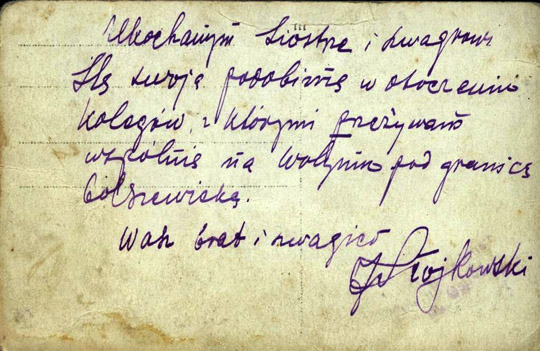 Ukochanym Siostrze i szwagrowi
Ślę swoją podobiznę w otoczeniu
Kolegów, z którymi przeżywam
wspólnie na Wołyniu pod granicą
bolszewicką.
Wasz brat i szwagier
Stojkowski